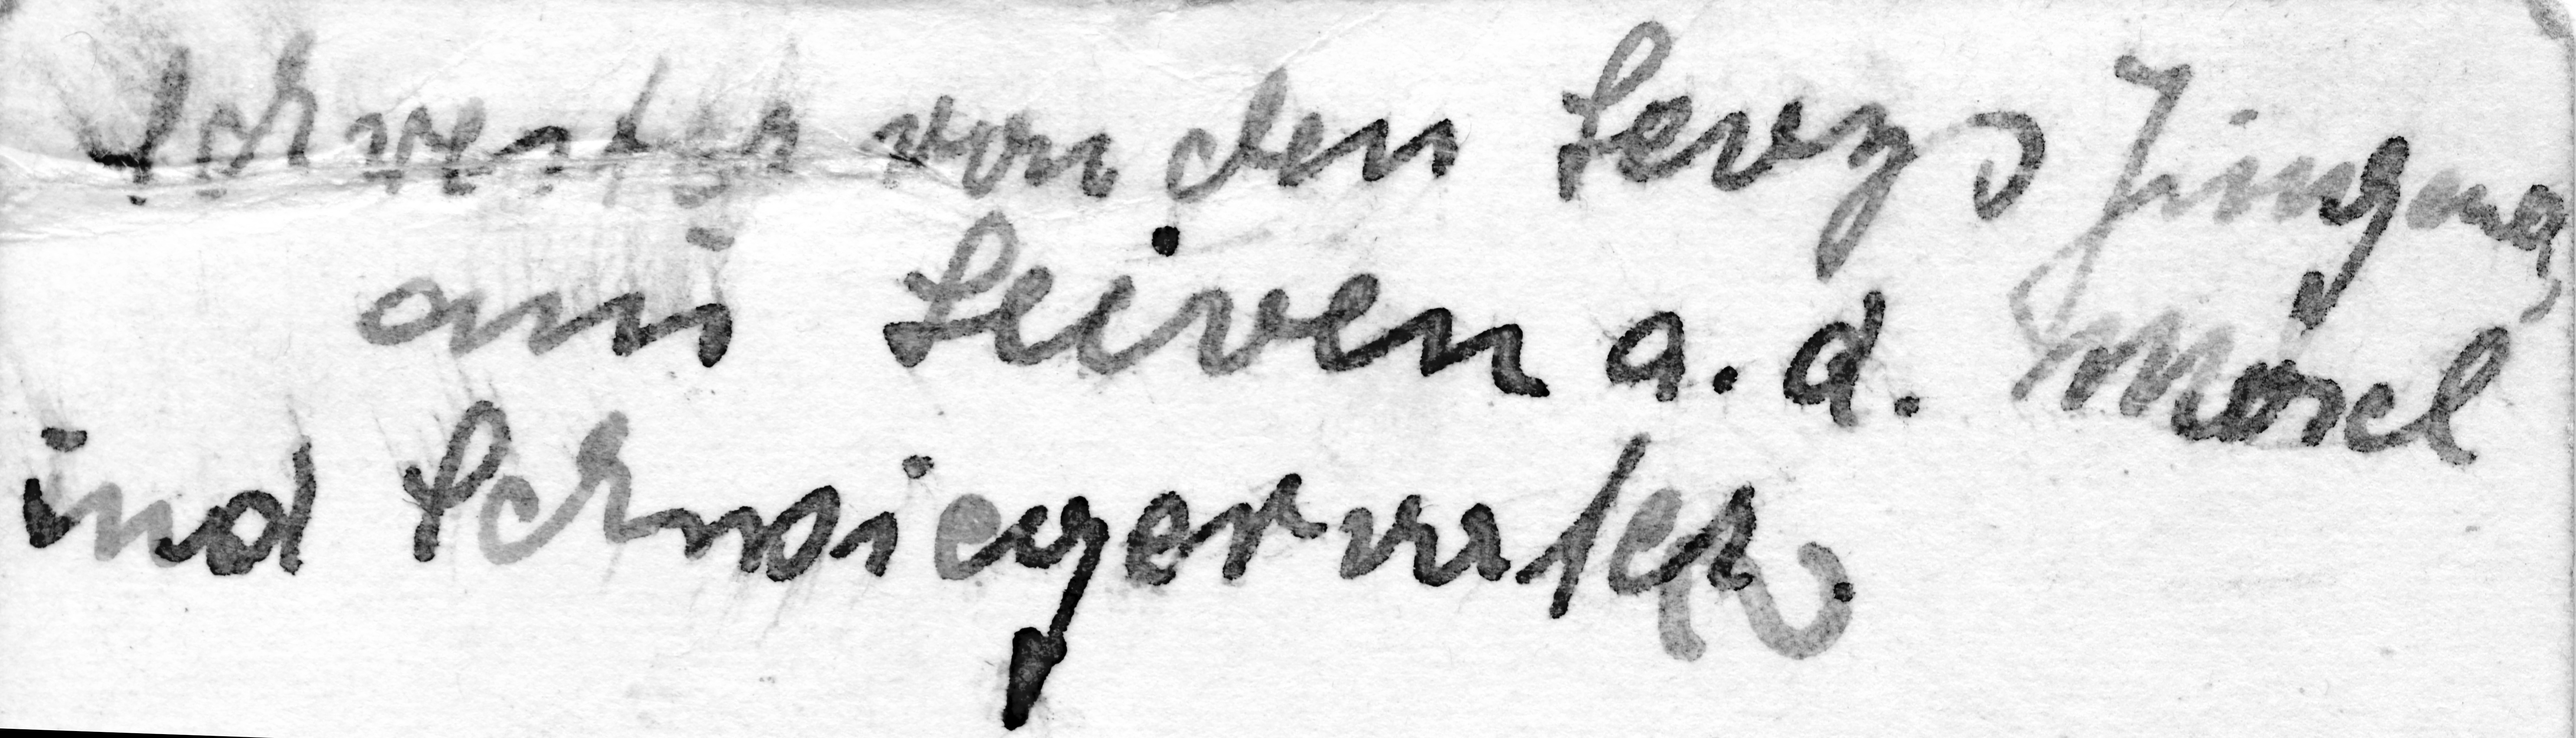 Schwester von den Levys Jungens
aus Leiven a. d. Mosel
und Schwiegervater.